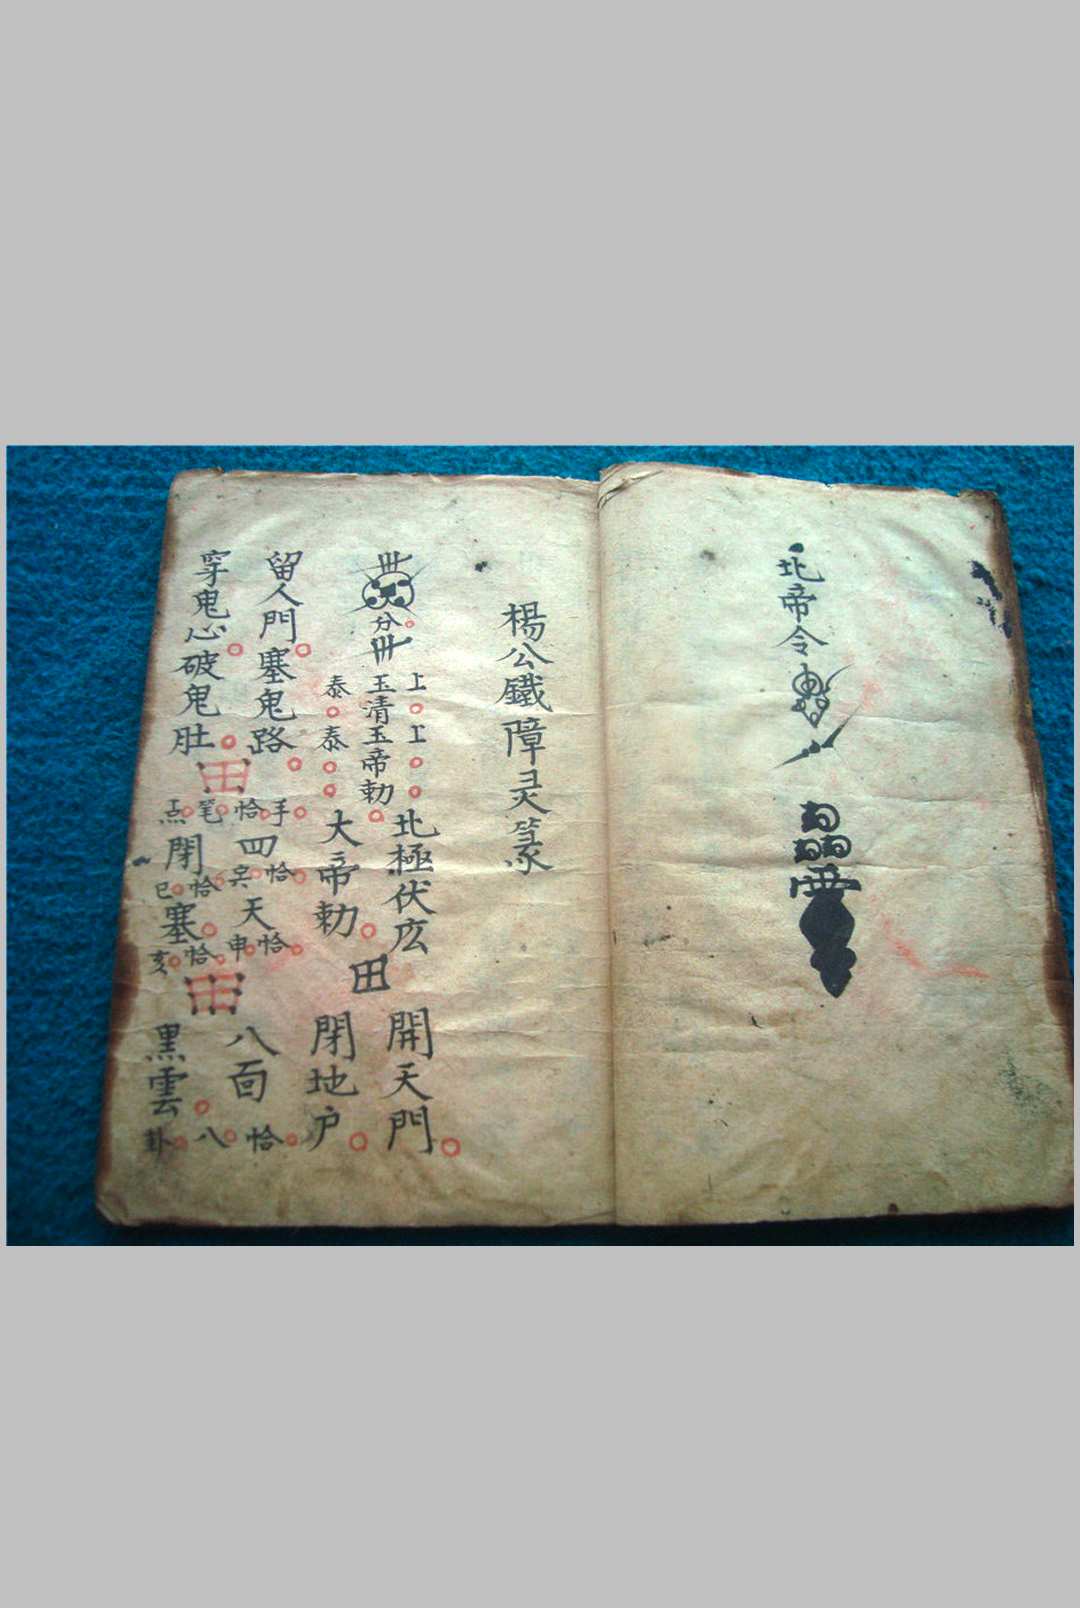 北帝令
楊公鐵障灵篆
上上
玉清玉帝勅
泰泰
北極伏広
大帝勅
田
開天門
閉地户
留人門塞鬼路
穿鬼心破鬼肚
田
手恰笔点
四閉
恰
恰巳
天塞
恰申恰亥
田
八面
黒雲
恰八卦